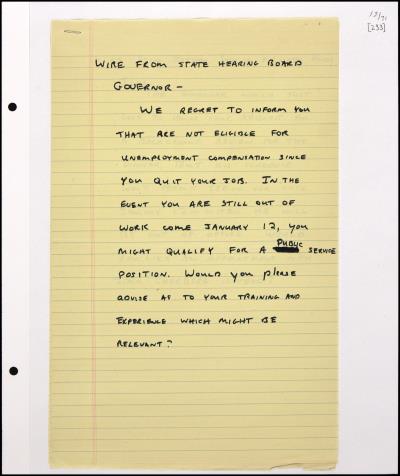 13/71
[233]
WIRE FROM STATE HEARING BOARD
GOVERNOR –
WE REGRET TO INFORM YOU
THAT ARE NOT ELIGIBLE FOR
UNEMPLOYMENT COMPENSATION SINCE
YOU QUIT YOUR JOB. IN THE
EVENT YOU ARE STILL OUT OF
WORK COME JANUARY 12, YOU
MIGHT QUALIFY FOR A PUBLIC SERVICE
POSITION. WOULD YOU please
ADVISE AS TO YOUR TRAINING AND
EXPERIENCE WHICH MIGHT BE
RELEVANT?